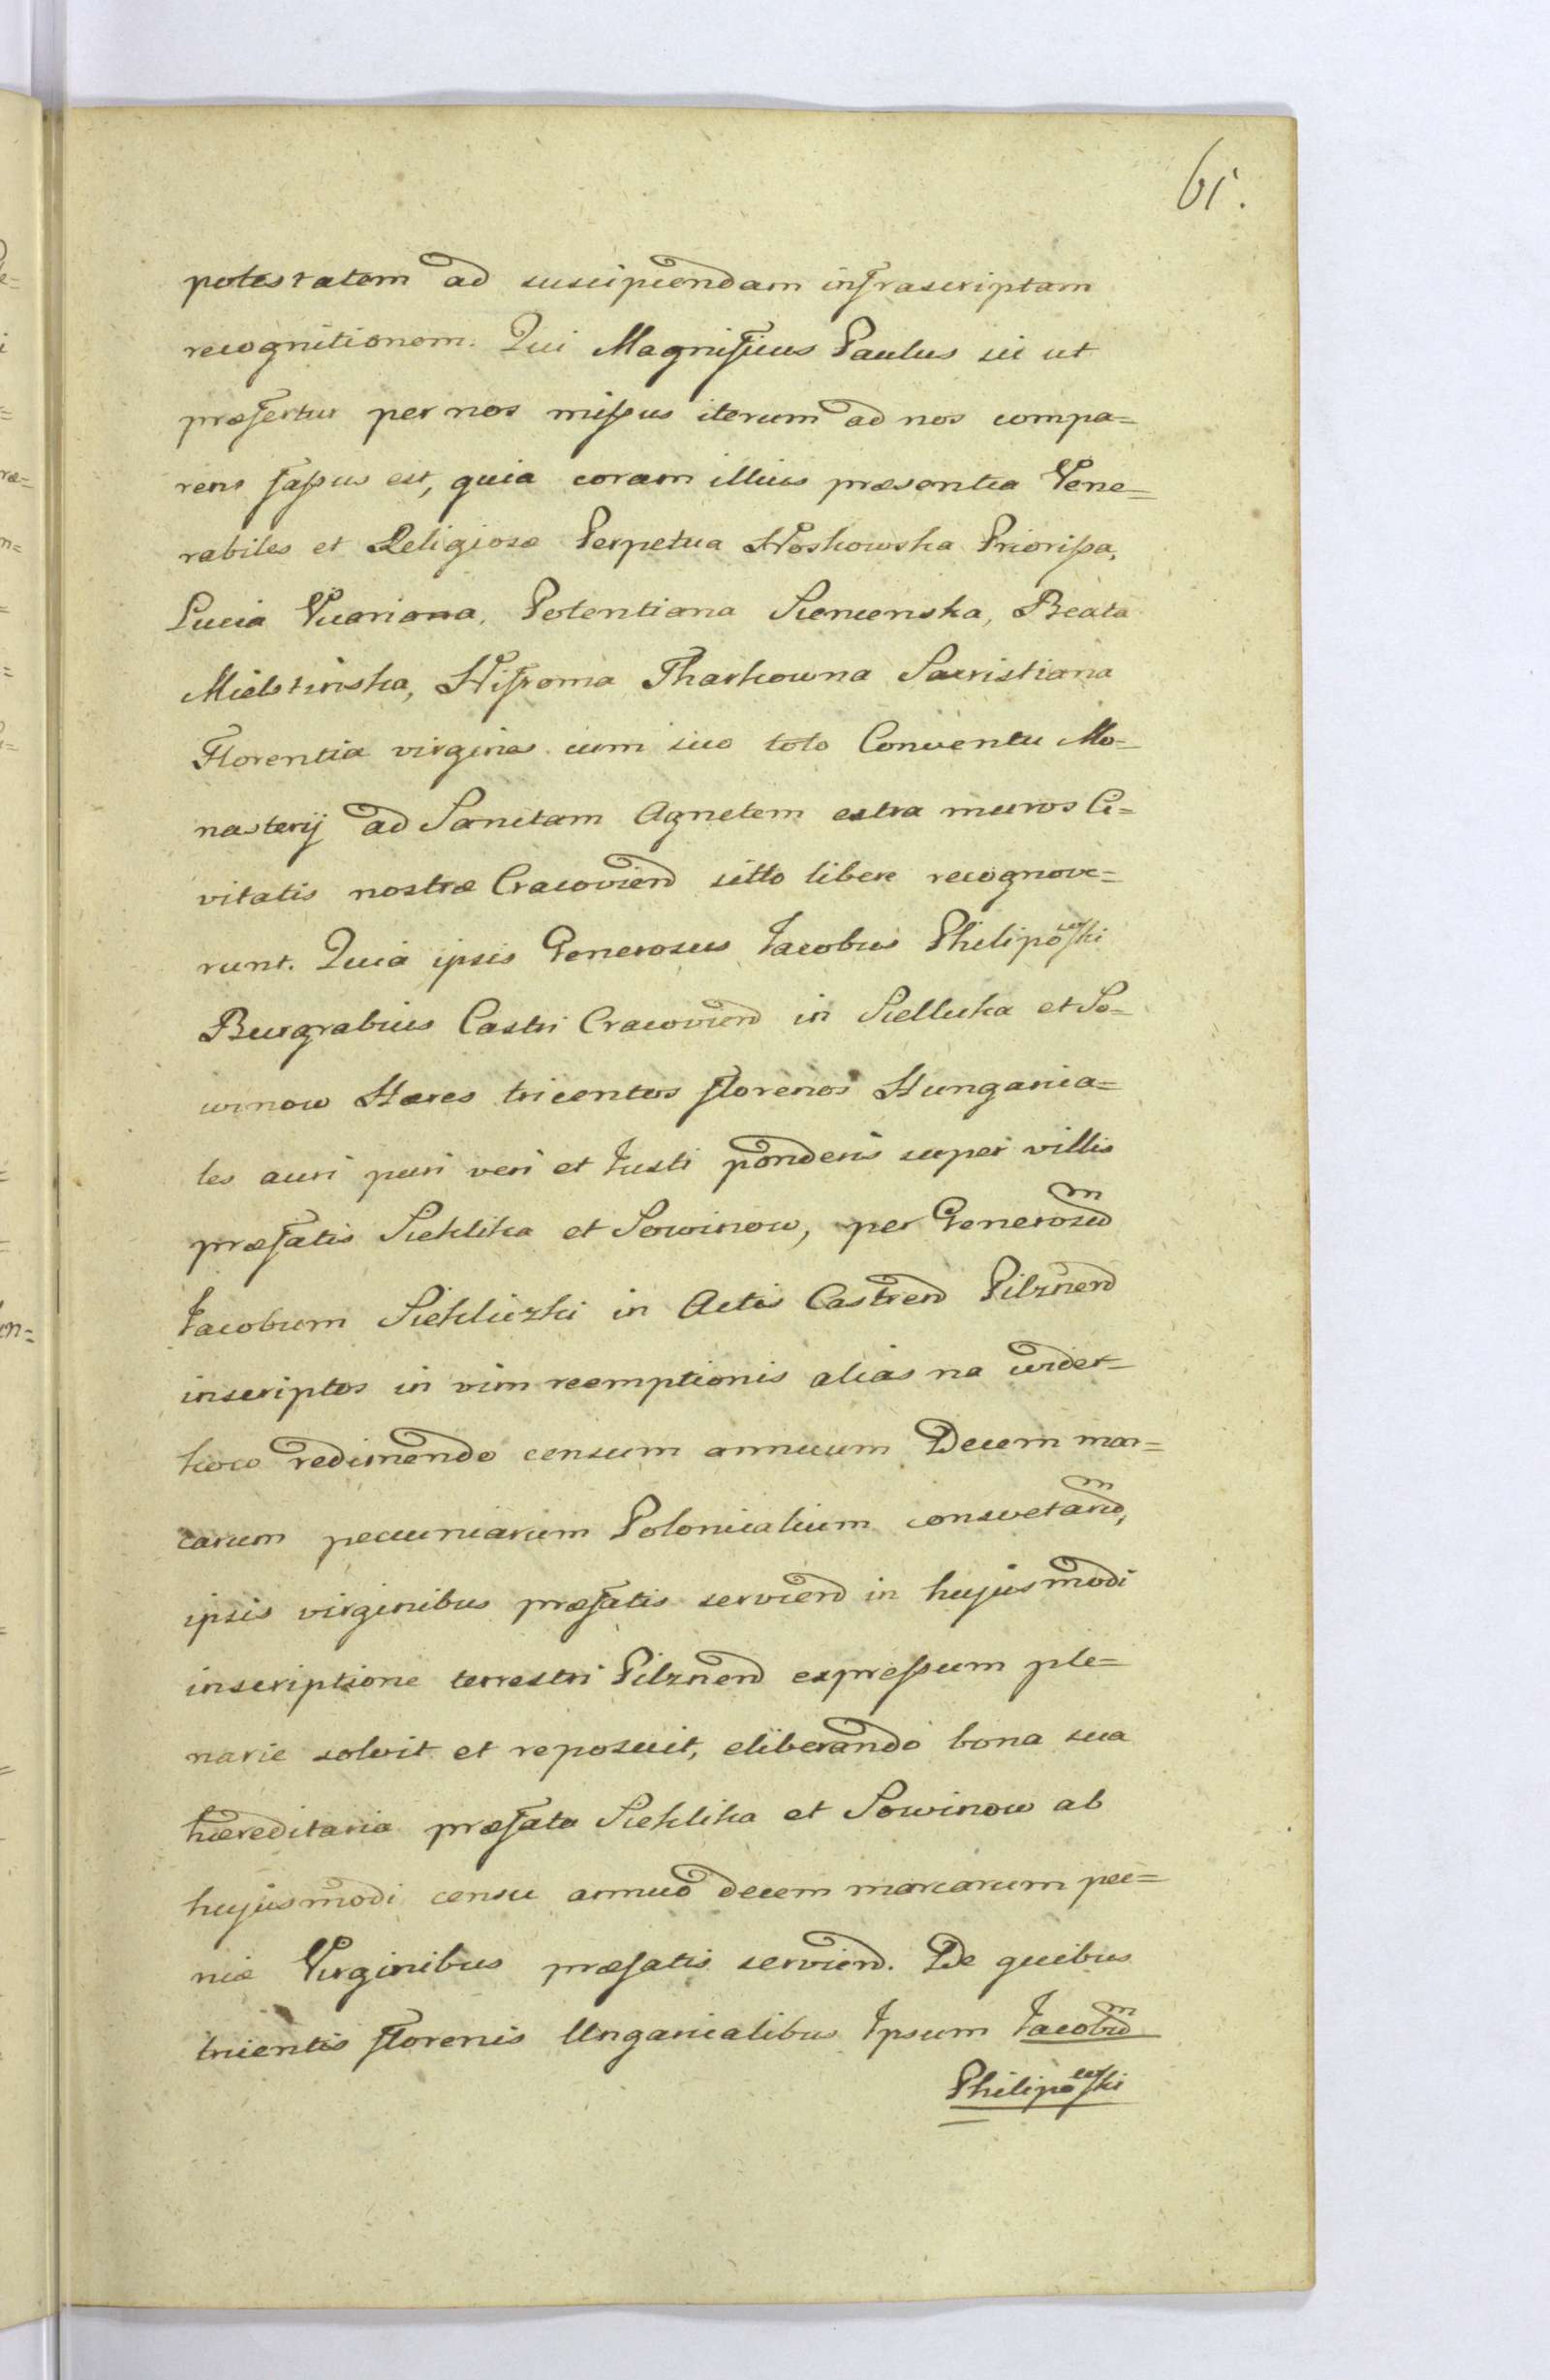 61.
potestatem ad suscipiendam infrascriptam
recognitionem. Qui Magnificus Paulus sic ut
præfertur per nos missus iterum ad nos compa=
rens fassus est, quia coram illius præsentia Vene=
rabiles et Religiosæ Perpetua Woskowska Priorissa,
Lucia Vicariana, Potentiana Siemienska, Beata
Mielstinska, Tharkowna Sacristiana
Florentia virgines cum suo toto Conventu Mo=
nasterij ad Sanctam Agnetem extra muros Ci=
vitatis nostræ Cracoviend sitto libere recognove=
runt. Quia ipsis Generosus Jacobus Philipowski
Burgrabius Castri Cracoviend in Siellicka et So=
winow Hæres tricentos florenos Hungarica=
les auri puri veri et Justi ponderis super villis
præfatis Sieklika et Sowinow, per Generosum
Jacobum Siekliczki in Actis Castrend Pilznend
inscriptos in vim reemptionis alias na wider=
kow redimendo censum annuum Decem mar=
carum pecuniarum Polonicalium consvetarum,
ipsis virginibus præfatis serviend in hujusmodi
inscriptione terrestri Pilznend expressum ple=
narie solvit et reposuit, eliberando bona sua
hæreditaria præfata Sieklika et Sowinow ab
hujusmodi censu annuo decem marcarum pec=
niæ Virginibus præfatis serviend. De quibus
tricentis florenis Ungaricalibus Ipsum Jacobum
Philipowski